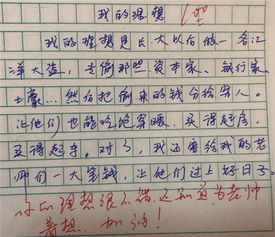 我的理想
我的理想是长大以后做一名江
洋大盗,去偷那些资本家、银行家、
土豪...然后把偷来的钱分给穷人。
让他们也能吃饱穿暖,买得起房,
买得起车。对了,我还要给我的老
师们一大笔钱,让他们过上好日子。
你的理想很不错,还知道为老师
着想。加油!